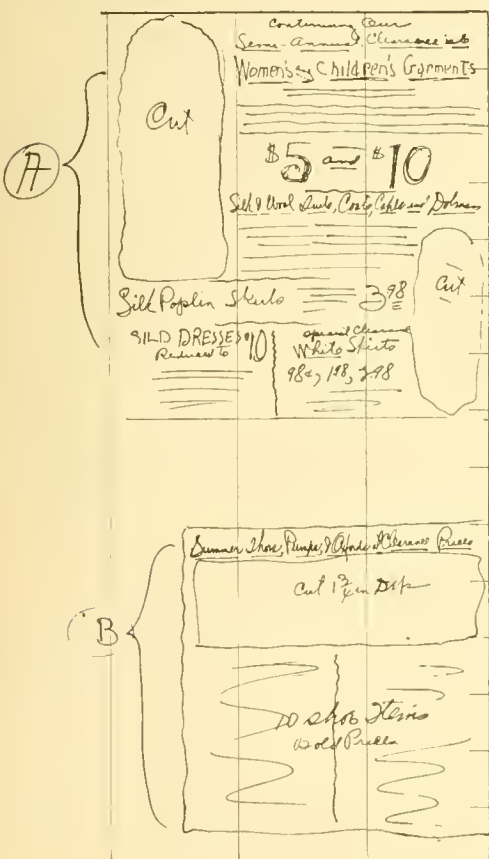 Continuing Our
Semi-Annual Clearance
Women's & Children's Garments
Cut
A
$5 and $10
Silk & Wool Suits, Coats, Capes and Dolmans
Cut
Silk Poplin Skirts 3 98
SILD DRESSES $10
Reduced to
Special Clearance
White Skirts
98¢, 198, 298
Summer Shoes, Pumps, & Oxfords Clearance Prices
Cut 1 3/4 in Deep
B
Shoe Items
Bold Prices